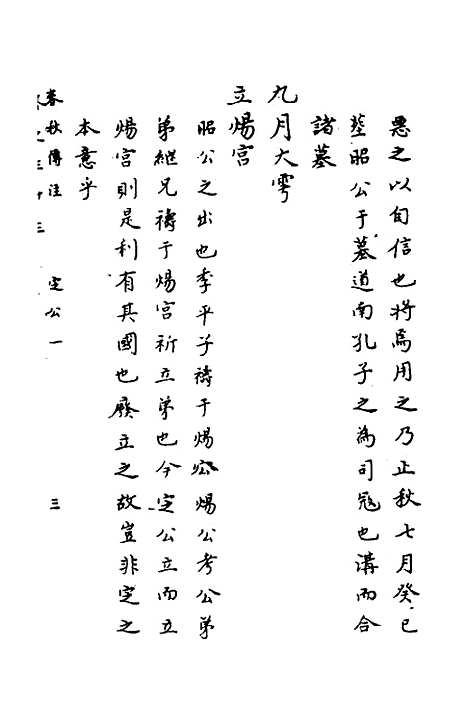 惡之以自信也將焉用之乃止秋七月癸巳
葬昭公于墓道南孔子之為司冦也溝而合
諸墓
九月大雩
立煬宮
昭公之出也季平子禱于煬公煬公考公弟
弟繼兄禱于煬宮祈立弟也今定公立而立
煬宮則是利有其國也廢立之故豈非定之
本意乎
春秋傳注
定公一
三